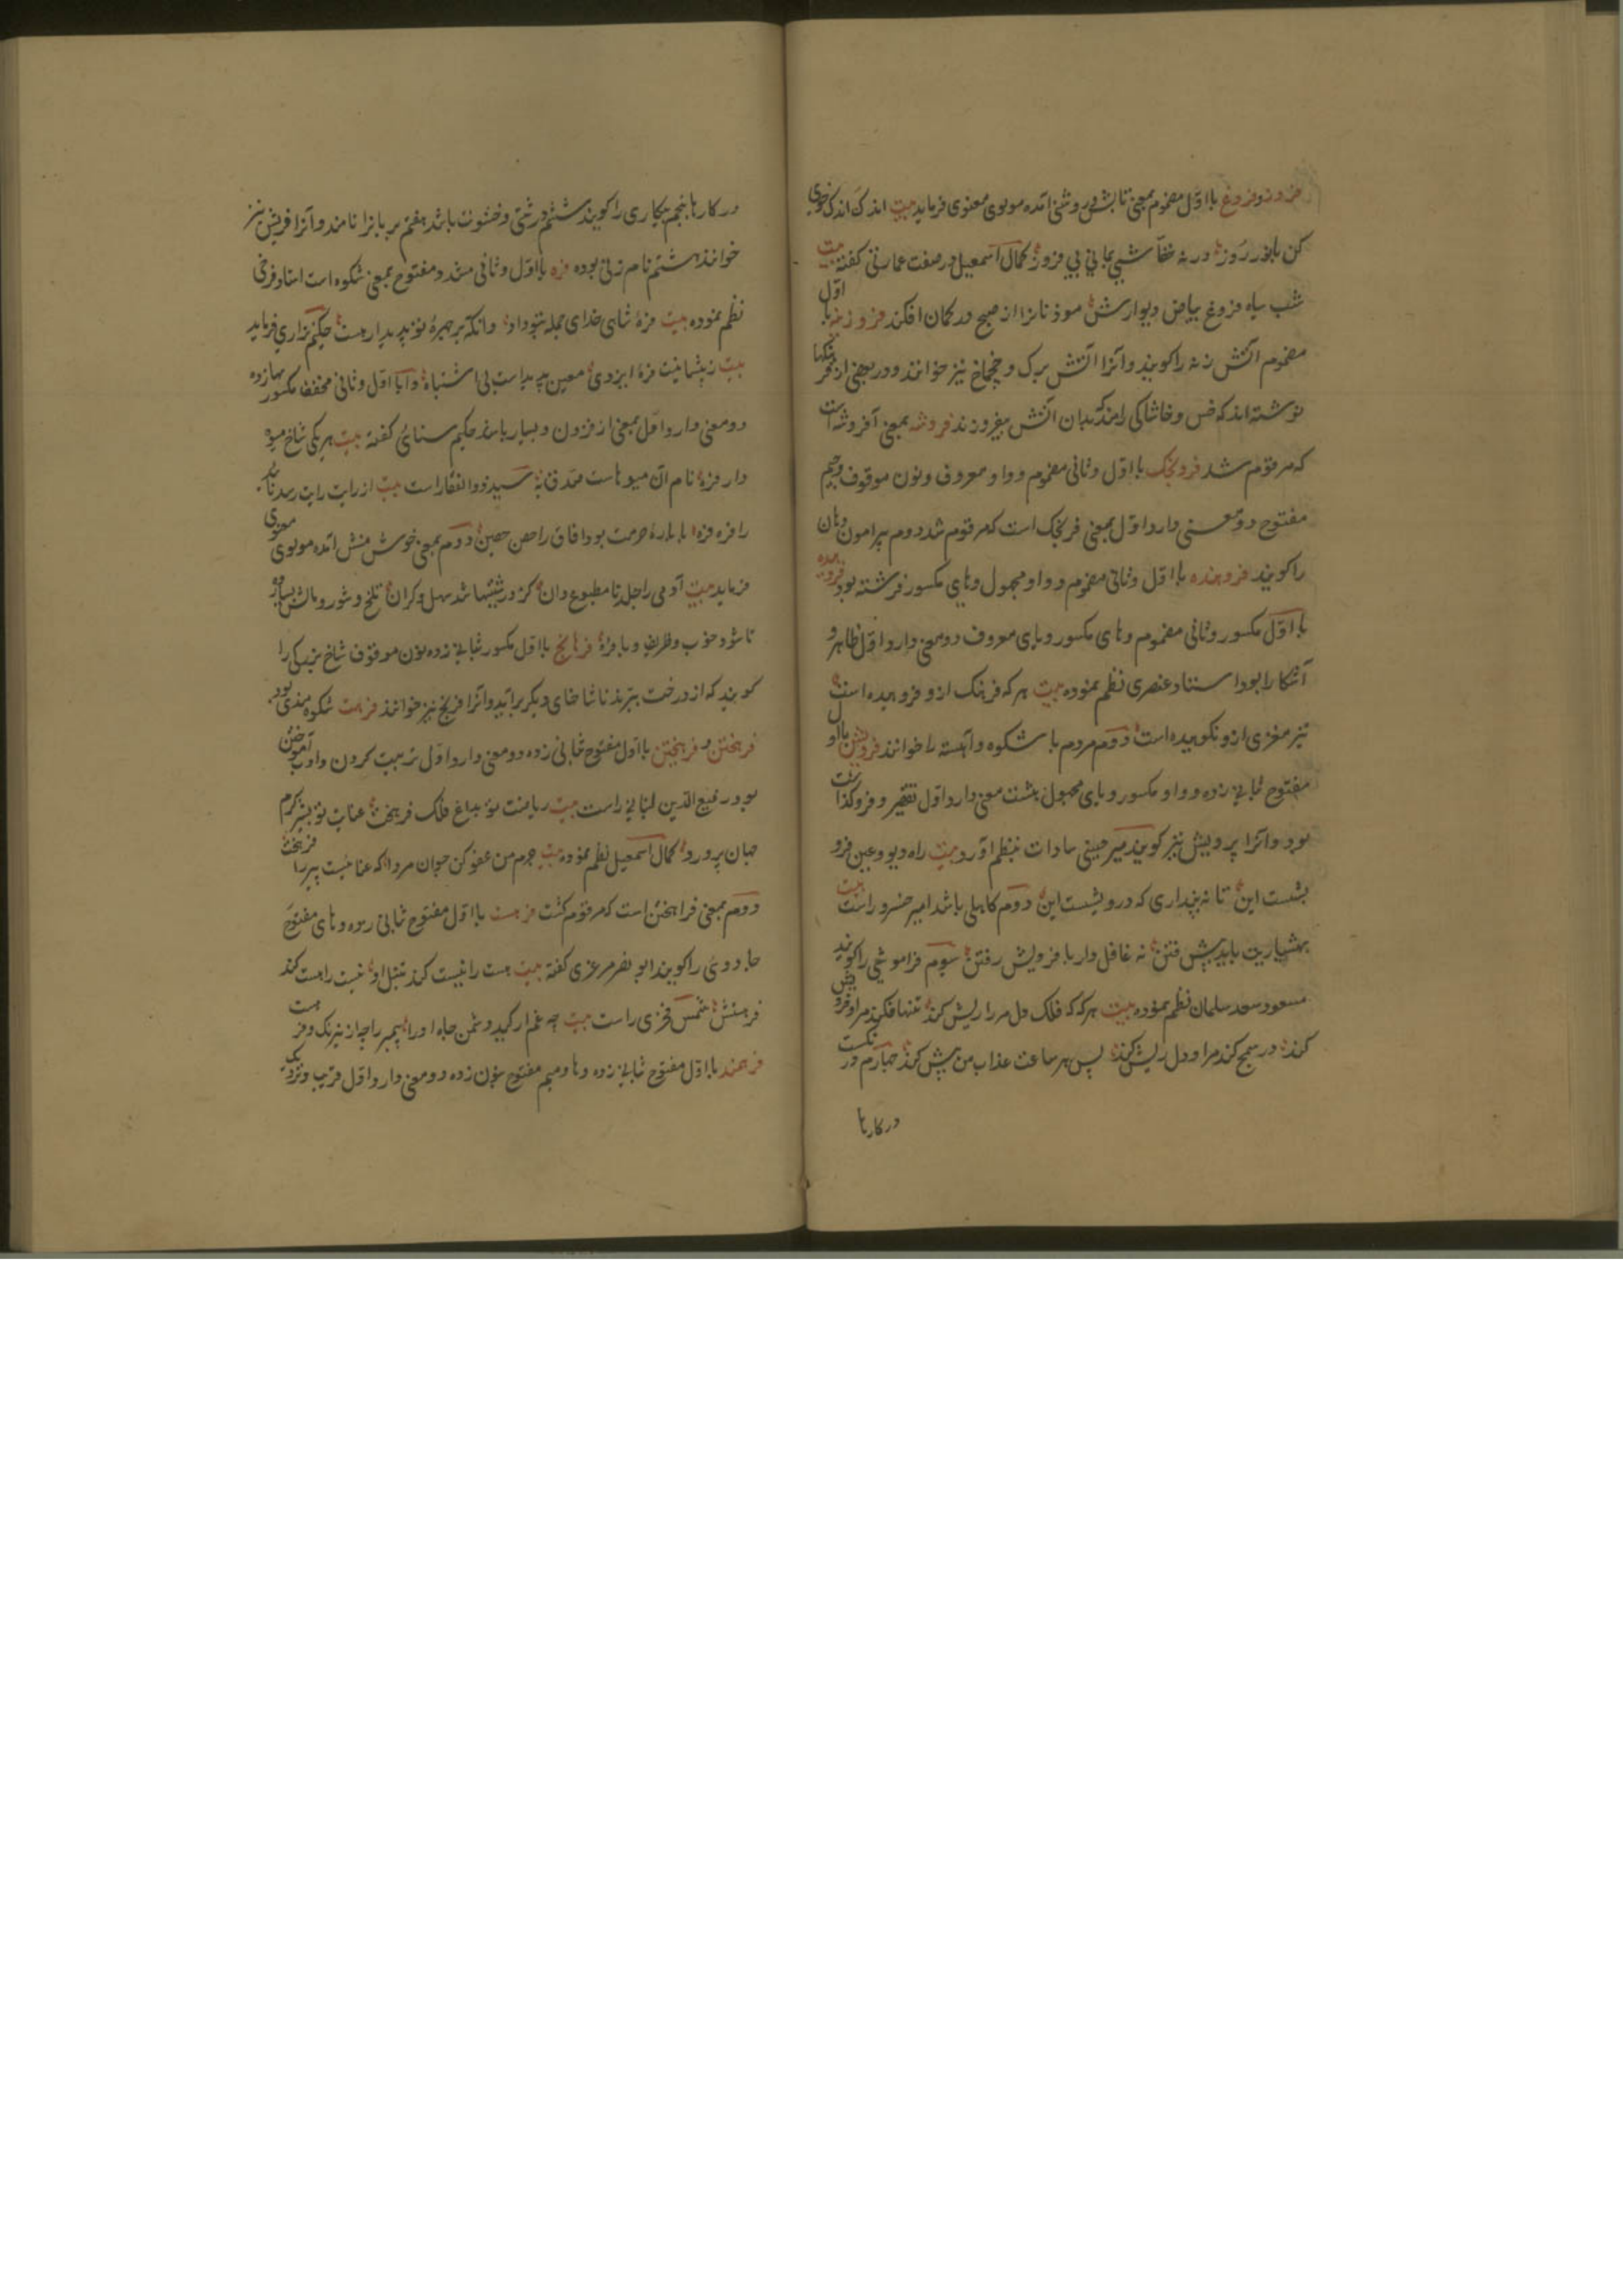 فروز و فروغ با اول مضموم بمعنی تابش و روشنی آمده مولوی معنوی فرماید بیت اندک اندک خوی
کن با نور روز ورنه خفاشی بمانی بی فروز کمال اسمعیل در صفت عمارتی کفته بیت
شب سیاه فروغ بیاض دیوارش موذنانرا از صبح در کمان افکند فروزنه با اول
مضموم آتش زنه را کویند و آنرا آتش برک و چخماخ نیز خوانند و در بعضی از فرهنکها
نوشته اند که خس و خاشاکی را مند که بدان آتش بیفروزند فروشه بمعنی آفروشه است
که مرقوم شد فرونجک با اول و ثانی مضموم و واو معروف و نون موقوف و جیم
مفتوح دو معنی دارد اول بمعنی فرنجک است که مرقوم شد دوم پیرامون دهان
را کویند فروهنده با اول و ثانی مضموم و واو مجهول و های مکسور فرشته بود فروهیده
با اول مکسور و ثانی مضموم و های مکسور و یای معروف دو معنی دارد اول ظاهر و
آشکارا بود استاد عنصری نظم نموده بیت هر که فرهنک ازو فروهیده است
تیز مغزی ازو نکوهیده است دوم مردم با شکوه و آهسته را خوانند فرویش با اول
مفتوح بثانی زده و واو مکسور و یای مجهول هشت معنی دارد اول تقصیر و فروکذاشت
بود و آنرا پرویش نیز کویند میر حسینی سادات بنظم آورد بیت راه دیو و عین فرو
یشست این تا نه پنداری که درویشست این دوم کاهلی باشد امیر خسرو راست بیت
بهشیاریت باید پیش رفتن نه غافل وار با فرویش رفتن سوم فراموشی را کویند
مسعود سعد سلمان نظم نموده بیت هر که که فلک دل مرا ریش کند تنها فکند مرا و فرویش
کند در سمج کند مرا و دل ریش کند پس هر ساعت عذاب من بیش کند چهارم در نکست
در کارها
در کارها پنجم بیکاری را کویند ششم درشتی و خشونت باشد هفتم بریانرا نامند و آنرا فریش نیز
خوانند هشتم نام زنی بوده فره با اول و ثانی مشدد مفتوح بمعنی شکوه است استاد فرخی
نظم نموده بیت فرهٔ شاهی خدای جمله بتو داد وانکه بر چهرهٔ تو پدیدار هست حکیم نزاری فرماید
بیت ز پیشانیت فرهٔ ایزدی معین پدیداست بی اشتباه و با اول و ثانی مخفف مکسور بها زده
دو معنی دارد اول بمعنی افزون و بسیار باشد حکیم سنائی کفته بیت هر یکی شاخ میوه
دار فره نام آن میوهاست سید ذوالفقار راست بیت از رایت رایت رسد تأیید
را فر فره با باره حرمت بود آفاق را حصن حصین دوم بمعنی خوش منش آمده مولوی معنوی
فرماید بیت آدمی را جلد نامطبوع دان کز درشتیها شد سهل و کران تلخ و شور و مالش بسیار ده
تا شود خوب و ظریف و با فره فرهانج با اول مکسور بثانی زده و نون موقوف شاخ بزرکی را
کویند که از درخت ببرند تا شاخهای دیکر برآید و آنرا فرهنج نیز خوانند فرهت شکوهمندی بود
فرهختن و فرهیختن با اول مفتوح بثانی زده دو معنی دارد اول تربیت کردن و ادب آموختن
بود رفیع الدین لنبانی راست بیت ریاضت تو بداغ فلک فرهخت عنایت تو بشیر کرم
جهان پرورد کمال اسمعیل نظم نموده بیت جرم من عفو کن جوان مردا که عنا هست پیر را فرهخت
دوم بمعنی فراهختن است که مرقوم کشت فرهست با اول مفتوح بثانی زده و های مفتوح
جادوی را کویند ابو نصر مرغزی کفته بیت هست را نیست کند تنبل او نیست را هست کند
فرهستش شمس فخری راست بیت چه غم ار کید دشمن جاه او را پیمبر را چه از نیرنک و فرهست
فرهمند با اول مفتوح بثانی زده و ها و میم مفتوح بنون زده دو معنی دارد اول قریب و نزدیک